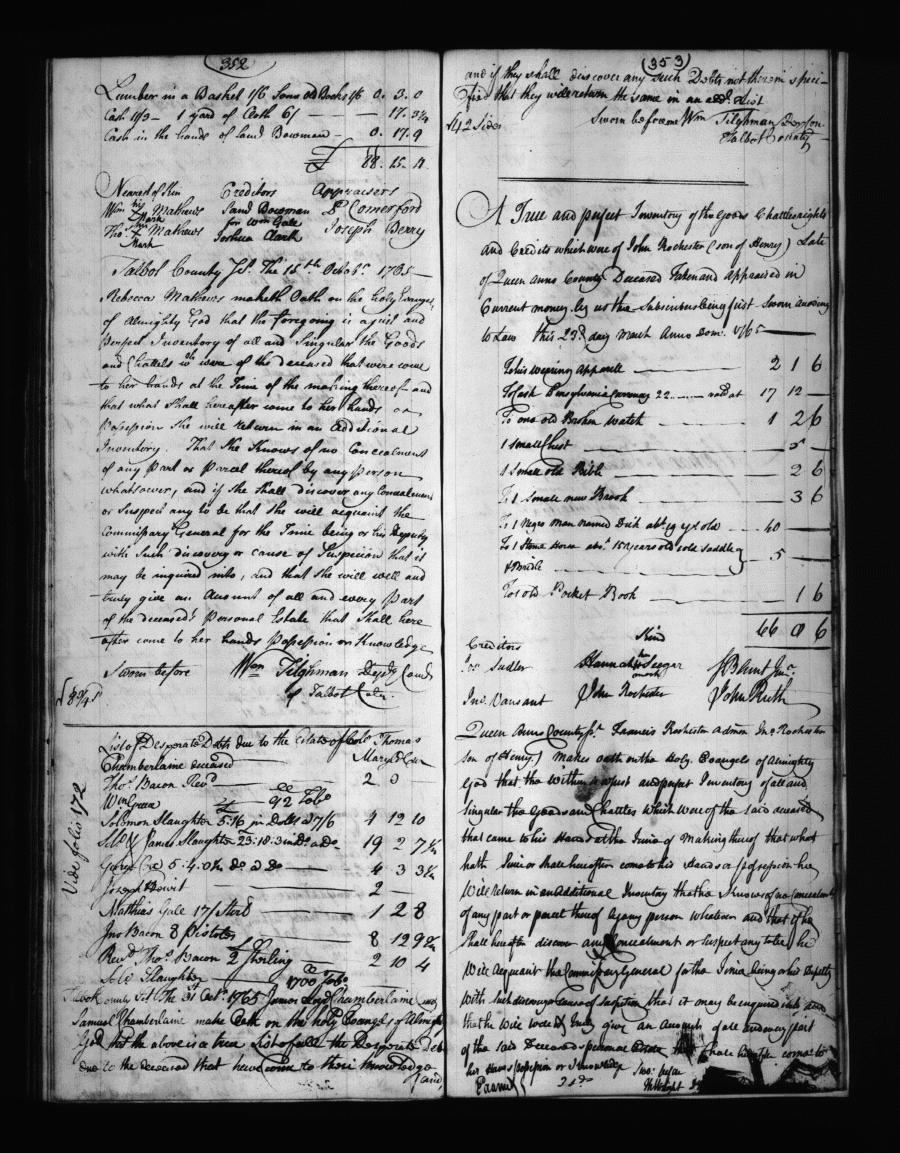 352
Lumber in a Basket 1/6 Some old Books 1/6 0. 3. 0
Cash 11/3 — 1 yard of Cloth 6/ — — 17. 3
Cash in the hands of Sand Bowman — 0. 17. 9
£ 88. 15. 4
Nearest of Kin Creditors Appraisers
Wm his X Mark Mathews Sand Bowman P Comerford
Tho.s his X Mark Mathews for Wm Gale Joseph Berry
Joshua Clark
Talbot County Sst. The 15th Octobr 1765 —
Rebecca Mathews maketh Oath on the holy Evangels
of Almighty God that the foregoing is a just and
Perfect Inventory of all and Singular the Goods
and Chattels wch were of the deceased that were come
to her hands at the Time of the making thereof and
that what Shall hereafter come to her hands or
Possession She will return in an additional
Inventory. That She Knows of no Concealment
of any Part or Parcel thereof by any Person
whatsoever, and if She Shall discover any Concealment
or Suspect any to be that She will acquaint the
Commissary General for the Time being or his Deputy
with Such discovery or cause of Suspicion that it
may be inquired into, and that She will well and
truly give an Account of all and every Part
of the deceaseds Personal Estate that Shall here
after come to her hands Possession or Knowledge
Sworn before Wm Tilghman Depty
of Talbot
List of Desperate Debts due to the Estate of Colo Thomas
Chamberlaine deceased Maryld
Tho.s Bacon Revd 2 0 —
Wm Green 92 Tobo
Solomon Slaughter 5.16 in Dolls a 7/6 4 12 10
James Slaughter 23:18:3 in do a do 19 2 7
5:4:0 do a do 4 3 3
Joseph 2 —
Matthias Gale 17/ Sterl 1 2 8
Jno Bacon 8 Pistoles 8 12 9
Revd Thos Bacon 2 £ Sterling 2 10 4
Slaughter 1700 Tobo
County Sst The 31st Octr 1765 James Lloyd Chamberlaine and
Samuel Chamberlaine make Oath on the holy Evangels of Almighty
God that the above is a true List of all the Desperate Debts
due to the deceased that have come to their knowledge
and,
Vide folio 172
353
and if they shall discover any such Debts not therein speci-
fied that they will return the same in an addl List
42 Sides Sworn before me Wm Tilghman
Talbot County
A True and perfect Inventory of the Goods Chattles rights
and Credits which were of John Rochester (son of Henry) Late
of Queen Anns County Deceased Taken and appraised in
Current money by us the Subscribers being first Sworn according
to Law this 23d day March Anno Dom. 1765
To his wearing Apparell 2 1 6
To Cash Pensylvania Currency 22 17 12 —
To one old Broken watch 1 2 6
1 small Chest 5 —
1 Small old Bible 2 6
To 1 Small new Book 3 6
To 1 Negro man named Dick abt 19 yr old 40 —
To 1 Horse abt 15 years old old Saddle
& Bridle 5 —
To 1 old Pocket Book 1 6
66 0 6
Creditors Kin
Jos Sudler Hannah her mark Seegar
Jno. Vansant John Rochester John Ruth
Queen Anns County Sst Francis Rochester Admor Jno Rochester
son of Henry) makes oath on the Holy Evangels of Almighty
God that the within a just and perfect Inventory of all and
singular the Goods and Chattles which were of the said deceased
that came to his Hands at the time of Making thereof that what
hath since or shall hereafter come to his Hands or possession he
Will return in an Additional Inventory that he Knows of no Concealment
of any part or parcel thereof by any person whatsoever and that if he
Shall hereafter discover any Concealment or Suspect any to be he
Will Acquaint the Commissary General for the Time being or his Deputy
with such discovery Cause of suspition that it may be enquired into and
that he will well & truly give an Account of all and every part
of the said Deceaseds personal Estate that shall hereafter come to
his Hands possession or Knowledge Swo. before